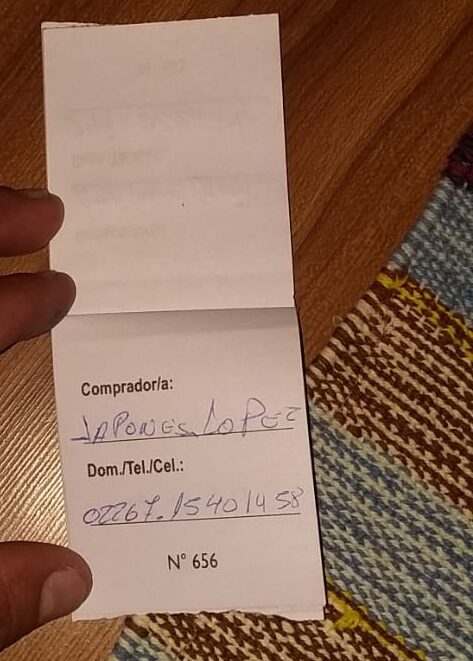 Comprador/a:
JAPONES LOPEZ
Dom./Tel./Cel.:
02267.15401458
N° 656